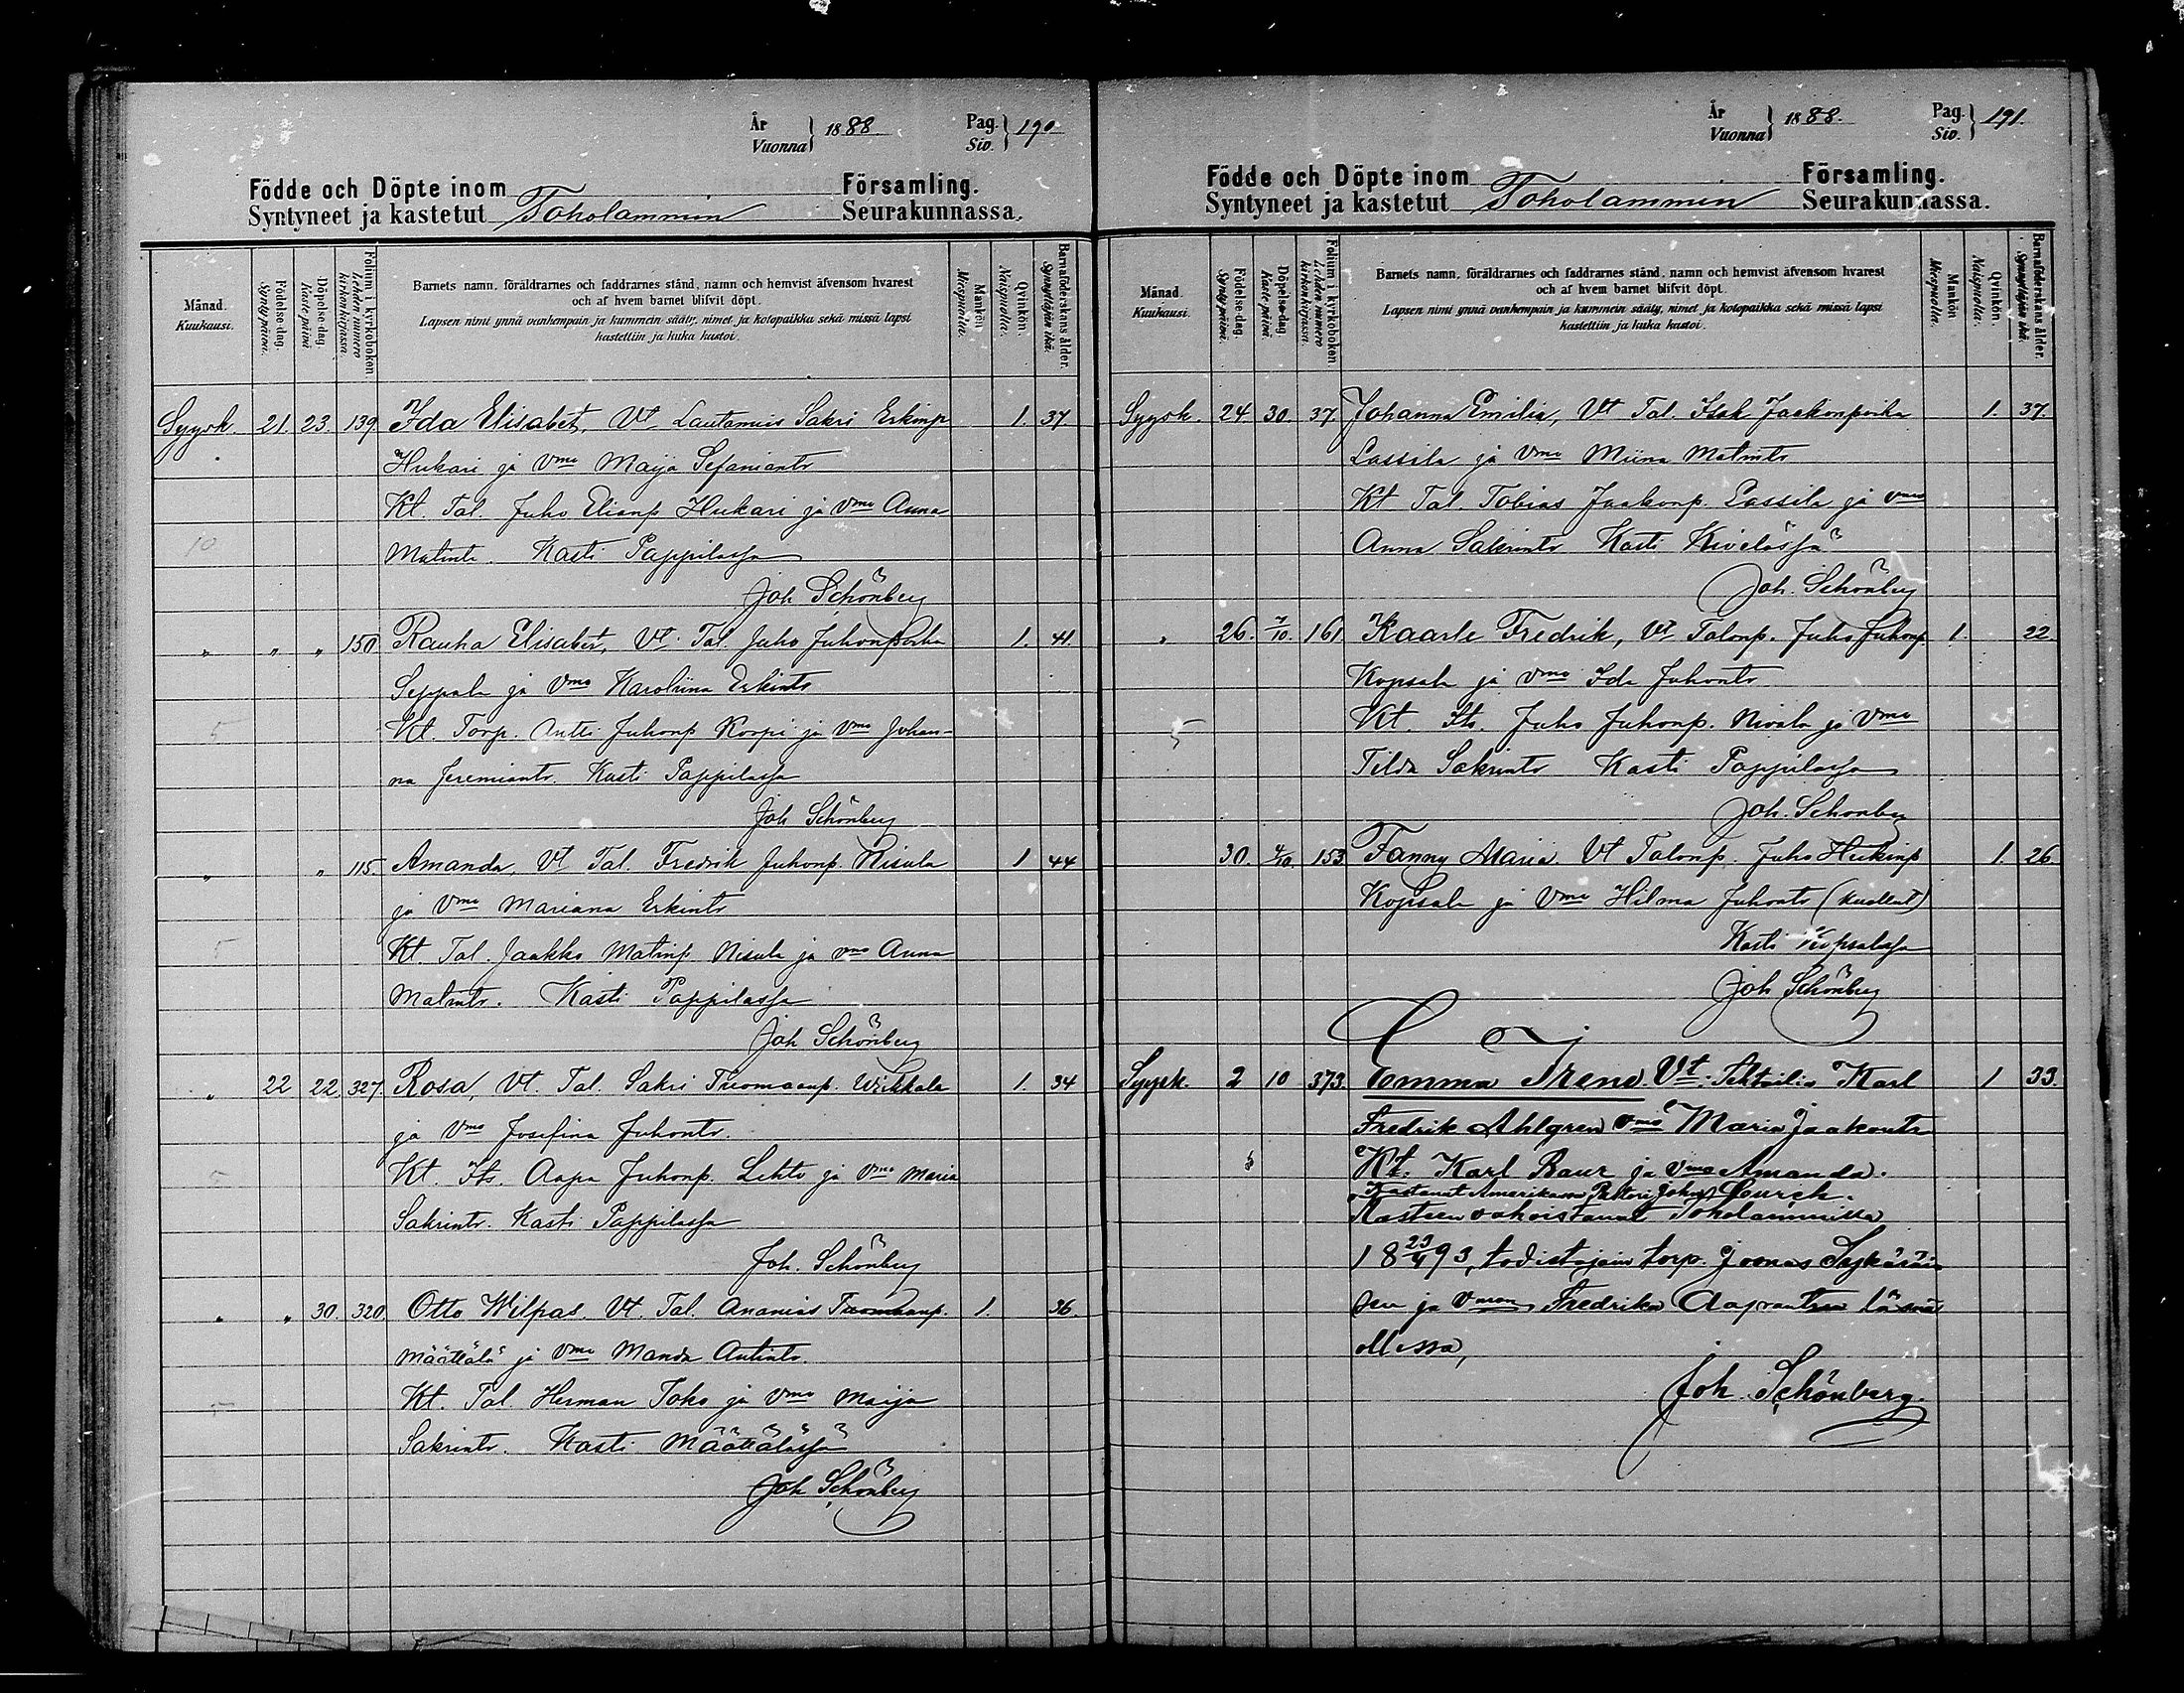 År
Vuonna } 1888. Pag.
Siv. } 190
Födde och Döpte inom Församling.
Syntyneet ja kastetut Toholammin Seurakunnassa.
Månad.
Kuukausi.
Födelse-dag.
Syntypäivä.
Döpelse-dag.
Kaste-päivä
Folium i kyrkoboken.
Lehden numero kirkonkirjassa.
Barnets namn, föräldrarnes och faddrarnes stånd, namn och hemvist äfvensom hvarest
och af hvem barnet blifvit döpt.
Lapsen nimi ynnä vanhempain ja kummein sääty, nimet ja kotopaikka sekä missä lapsi
kastettiin ja kuka kastoi.
Mankön.
Miespuolia.
Qvinkön.
Naispuolia.
Barnaföderskans ålder.
Synnyttäjän ikä.
Syysk. 21. 23. 139 Ida Elisabet, Vt Lautamies Sakri Erkinp 1. 37.
Hukari ja Vmo Maija Sefaniantr
Kt. Tal. Juho Elianp Hukari ja Vmo Anna
10 Matintr. Kasti Pappilassa
Joh Schönberg
„ „ „ 150 Rauha Elisabet, Vt. Tal. Juho Juhonpoika 1. 41.
Seppala ja Vmo Karoliina Erkintr
5 Kt. Torp. Antti Juhonp Korpi ja Vmo Johan-
na Jeremiantr. Kasti Pappilassa
Joh Schönberg
„ „ 115. Amanda, Vt Tal. Fredrik Juhonp. Nisula 1 44
ja Vmo Mariana Erkintr
5 Kt. Tal. Jaakko Matinp Nisula ja vmo Anna
Matintr. Kasti Pappilassa
Joh Schönberg
„ 22 22. 327. Rosa, Vt. Tal. Sakri Tuomaanp. Wirkkala 1. 34
ja Vmo Josefina Juhontr.
5 Kt. Its. Aapa Juhonp. Lehto ja Vmo Maria
Sakrintr. Kasti Pappilassa
Joh. Schönberg
„ „ 30. 320. Otto Wilpas. Vt. Tal. Ananias Tuomaanp. 1. 36.
Määttälä ja Vmo Manda Antintr.
5 Kt. Tal Herman Toko ja Vmo Maija
Sakrintr. Kasti Määttälässä
Joh Schönberg
År
Vuonna } 1888. Pag.
Siv. } 191.
Födde och Döpte inom Församling.
Syntyneet ja kastetut Toholammin Seurakunnassa.
Månad.
Kuukausi.
Födelse-dag.
Syntypäivä.
Döpelse-dag.
Kaste-päivä.
Folium i kyrkoboken.
Lehden numero kirkonkirjassa.
Barnets namn, föräldrarnes och faddrarnes stånd, namn och hemvist äfvensom hvarest
och af hvem barnet blifvit döpt.
Lapsen nimi ynnä vanhempain ja kummein sääty, nimet ja kotopaikka sekä missä lapsi
kastettiin ja kuka kastoi.
Mankön
Miespuolia.
Qvinkön.
Naispuolia.
Barnaföderskans ålder.
Synnyttäjän ikä.
Syysk. 24 30. 37. Johanna Emilia, Vt Tal. Isak Jaakonpoika 1. 37.
Lassila ja Vmo Miina Matintr
Kt Tal. Tobias Jaakonp. Lassila ja vmo
Anna Sakrintr Kasti Kivelässä
Joh. Schönberg
„ 26. 7/10. 161 Kaarle Fredrik, Vt Talonp. Juho Juhonp. 1. 22
Kopsala ja Vmo Ida Juhontr
5 Kt. Its. Juho Juhonp. Nivala ja Vmo
Tilda Sakrintr Kasti Pappilassa
Joh. Schönberg
30. 4/10. 153 Fanny Maria Vt Talonp. Juho Heikinp 1. 26
Kopsala ja Vmo Hilma Juhontr (kuollut)
Kasti Kopsalassa
Joh Schönberg
Syysk. 2 10 373. Emma Irene. Vt. Karl 1 33.
Fredrik Ahlgren Vmo Maria Jaakontr
Kt. Karl Baur ja Vmo Amanda.
Kastanut Amerikassa Pastori John Lourch.
Kasteen vahvistanut Toholammissa
18 23/4 93, todistajain torp. Joonas Sykäräi-
sen ja Vmon Fredrika Aaprantren läsnä
ollessa,
Joh. Schönberg.